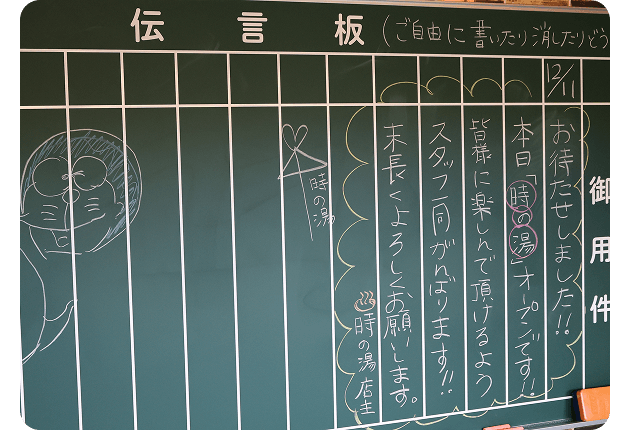 伝言板(ご自由に書いたり消したりどう
御用件
12/11
お待たせしました!!
本日「時の湯」オープンです!!
皆様に楽しんで頂けるよう
スタッフ一同がんばります!!
末長くよろしくお願いします。
♨時の湯店主
時の湯